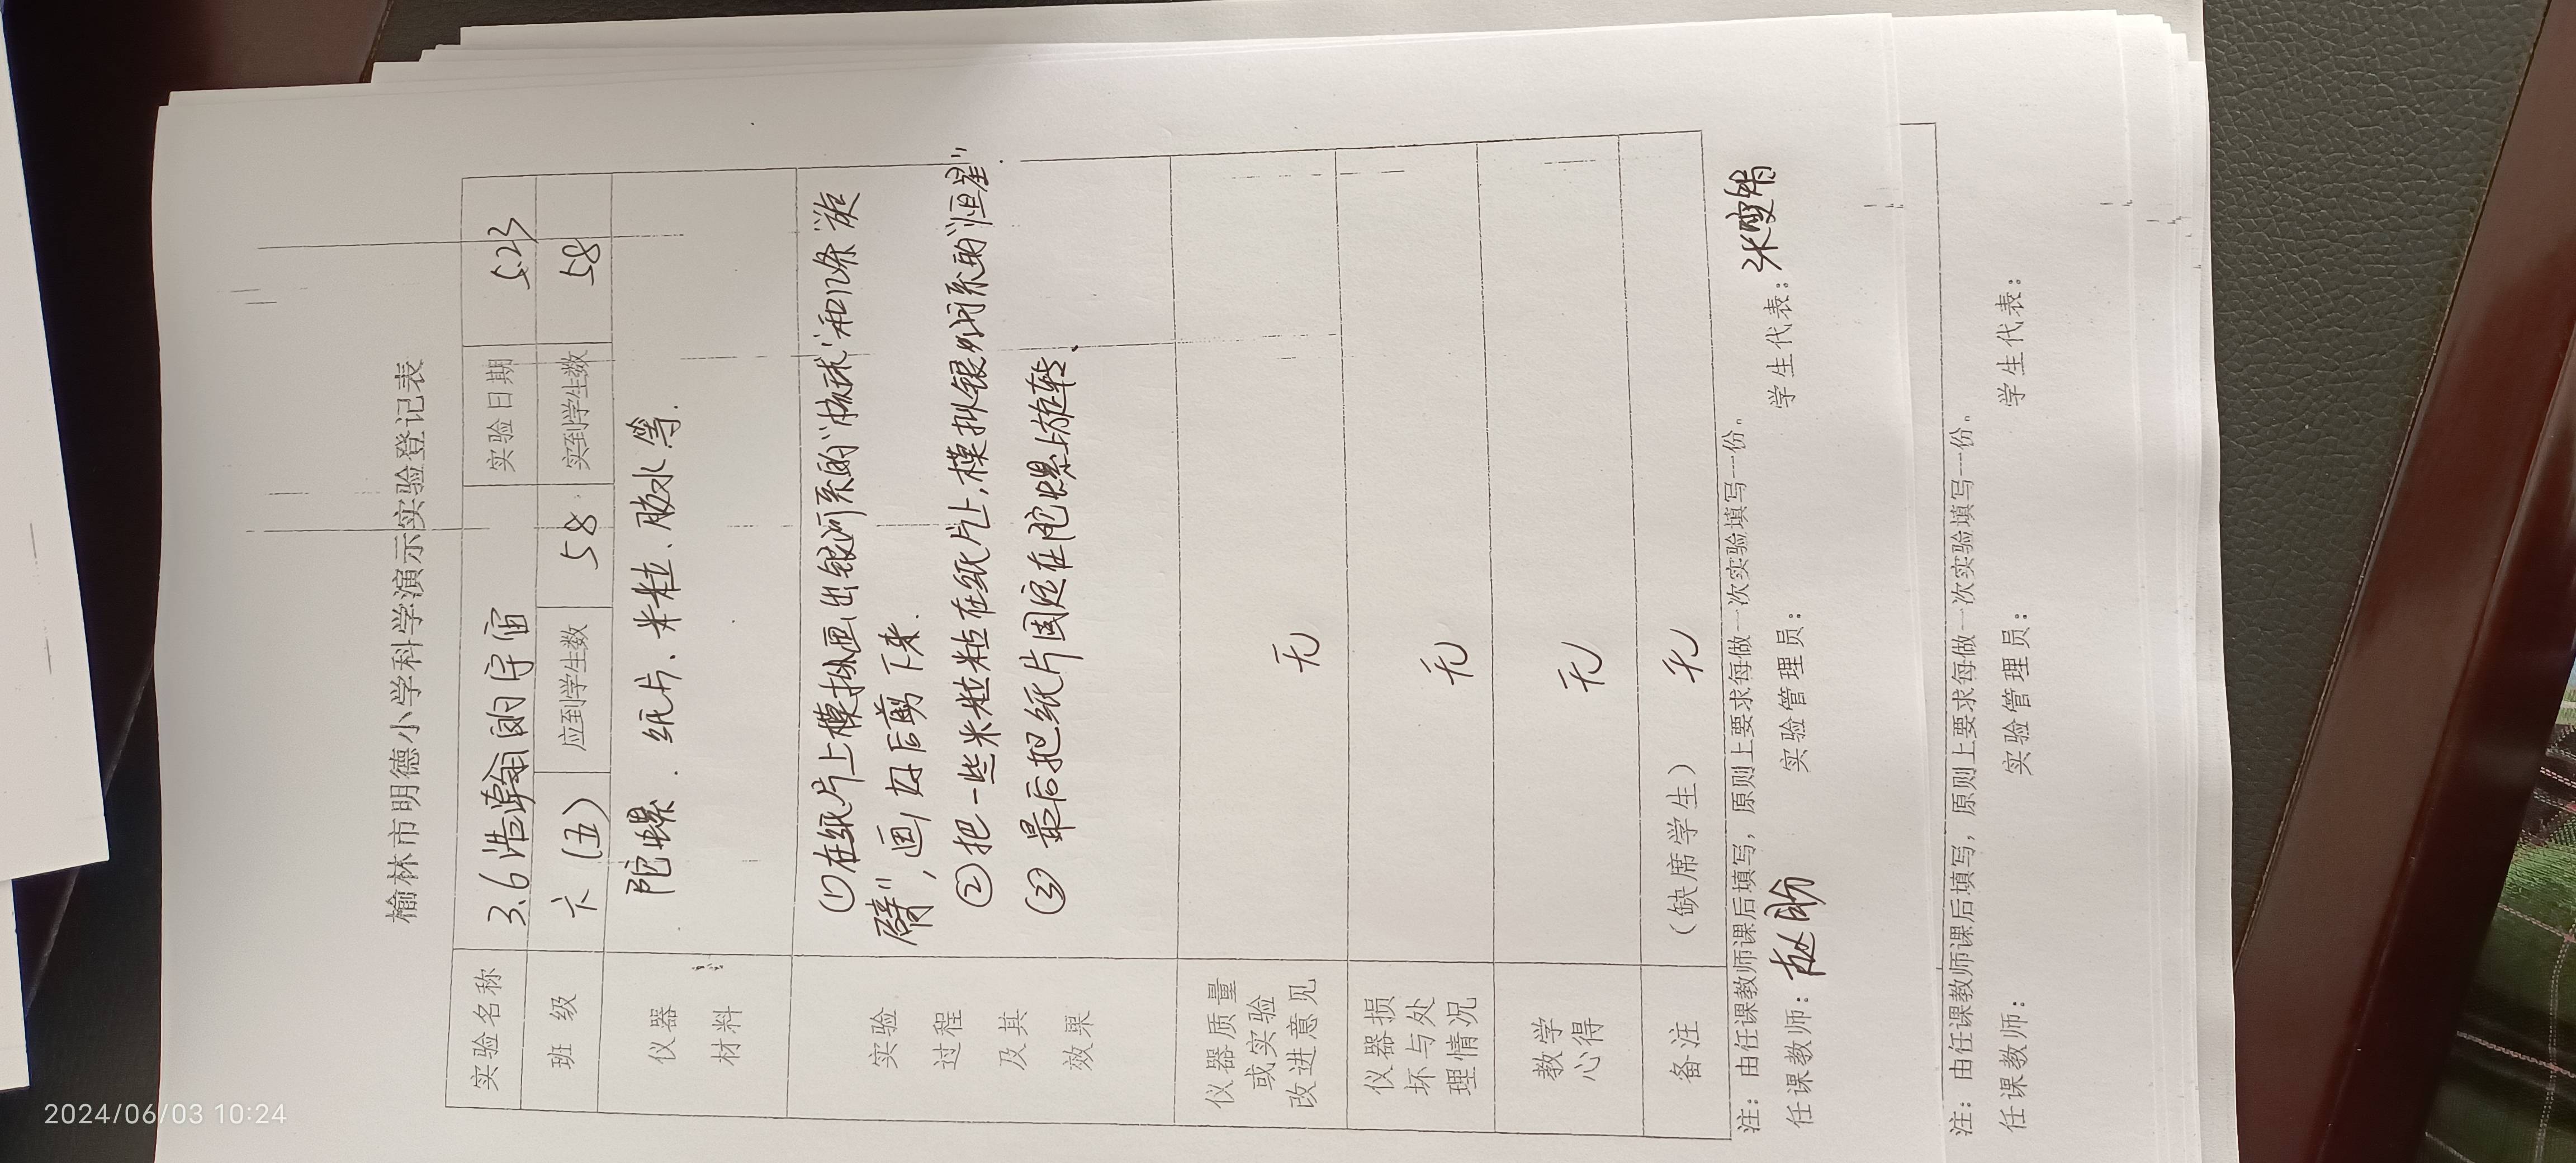 榆林市明德小学科学演示实验登记表
实验名称 3.6浩瀚的宇宙 实验日期 5.23
班 级 六(五) 应到学生数 58 实到学生数 58
仪器 陀螺、纸片、米粒、胶水等.
材料
实验 ①在纸片上模拟画出银河系的"核球"和几条"旋
过程 臂",画好后剪下来.
及其 ②把一些米粒粘在纸片上,模拟银河系的"恒星".
效果 ③最后把纸片固定在陀螺上旋转.
仪器质量
或实验 无
改进意见
仪器损
坏与处 无
理情况
教学 无
心得
备注 (缺席学生) 无
注:由任课教师课后填写,原则上要求每做一次实验填写一份。
任课教师:赵盼 实验管理员: 学生代表:
注:由任课教师课后填写,原则上要求每做一次实验填写一份。
任课教师: 实验管理员: 学生代表:
2024/06/03 10:24